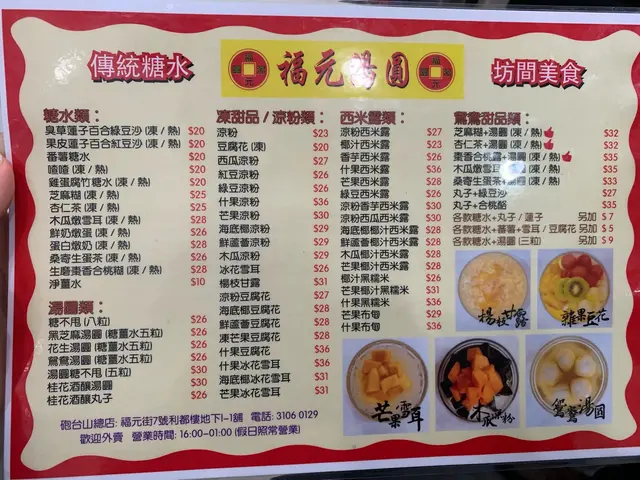 傳統糖水
福元湯圓
坊間美食
糖水類：
臭草蓮子百合綠豆沙 (凍 / 熱) $20
果皮蓮子百合紅豆沙 (凍 / 熱) $20
蕃薯糖水 $20
喳喳 (凍 / 熱) $20
雞蛋腐竹糖水 (凍 / 熱) $20
芝麻糊 (凍 / 熱) $25
杏仁茶 (凍 / 熱) $25
木瓜燉雪耳 (凍 / 熱) $28
鮮奶燉蛋 (凍 / 熱) $26
蛋白燉奶 (凍 / 熱) $28
桑寄生蛋茶 (凍 / 熱) $26
生磨棗香合桃糊 (凍 / 熱) $28
淨薑水 $10
湯圓類：
糖不甩 (八粒) $26
黑芝麻湯圓 (糖薑水五粒) $26
花生湯圓 (糖薑水五粒) $26
鴛鴦湯圓 (糖薑水五粒) $26
湯圓糖不甩 (五粒) $30
桂花酒釀湯圓
桂花酒釀丸子
凍甜品 / 涼粉類：
涼粉 $23
豆腐花 (凍) $20
西瓜涼粉 $27
紅豆涼粉 $26
綠豆涼粉 $26
什果涼粉 $30
芒果涼粉 $30
海底椰涼粉 $29
鮮蘆薈涼粉 $29
木瓜涼粉 $29
冰花雪耳 $26
楊枝甘露 $31
涼粉豆腐花 $27
海底椰豆腐花 $28
鮮蘆薈豆腐花 $28
凍芒果豆腐花 $28
什果豆腐花 $30
什果冰花雪耳 $36
海底椰冰花雪耳 $31
芒果冰花雪耳 $31
西米露類：
涼粉西米露 $27
椰汁西米露 $23
香芋西米露 $26
什果西米露 $28
芒果西米露 $28
綠豆西米露
涼粉香芋西米露
涼粉西瓜西米露
海底椰椰汁西米露
木瓜椰汁西米露
芒果椰汁西米露
椰汁黑糯米
芒果椰汁黑糯米 $31
什果椰汁黑糯米 $31
芒果布甸 $29
什果布甸 $36
鴛鴦甜品類：
芝麻糊+湯圓 (凍 / 熱) $32
杏仁茶+湯圓 (凍 / 熱) $32
棗香合桃露+湯圓 (凍 / 熱) $35
木瓜燉雪耳+湯圓 (凍 / 熱) $35
桑寄生蛋茶+湯圓 (凍 / 熱) $33
丸子+綠豆沙 $27
丸子+合桃酪 $35
各款糖水+丸子 / 蓮子 另加 $ 7
各款糖水+蕃薯+雪耳 / 豆腐花 另加 $ 5
各款糖水+湯圓 (三粒) 另加 $ 9
楊枝甘露
雜果豆花
芒果雪耳
木瓜涼粉
鴛鴦湯圓
砲台山總店: 福元街7號利都樓地下1-1舖 電話: 3106 0129
歡迎外賣 營業時間: 16:00-01:00 (假日照常營業)